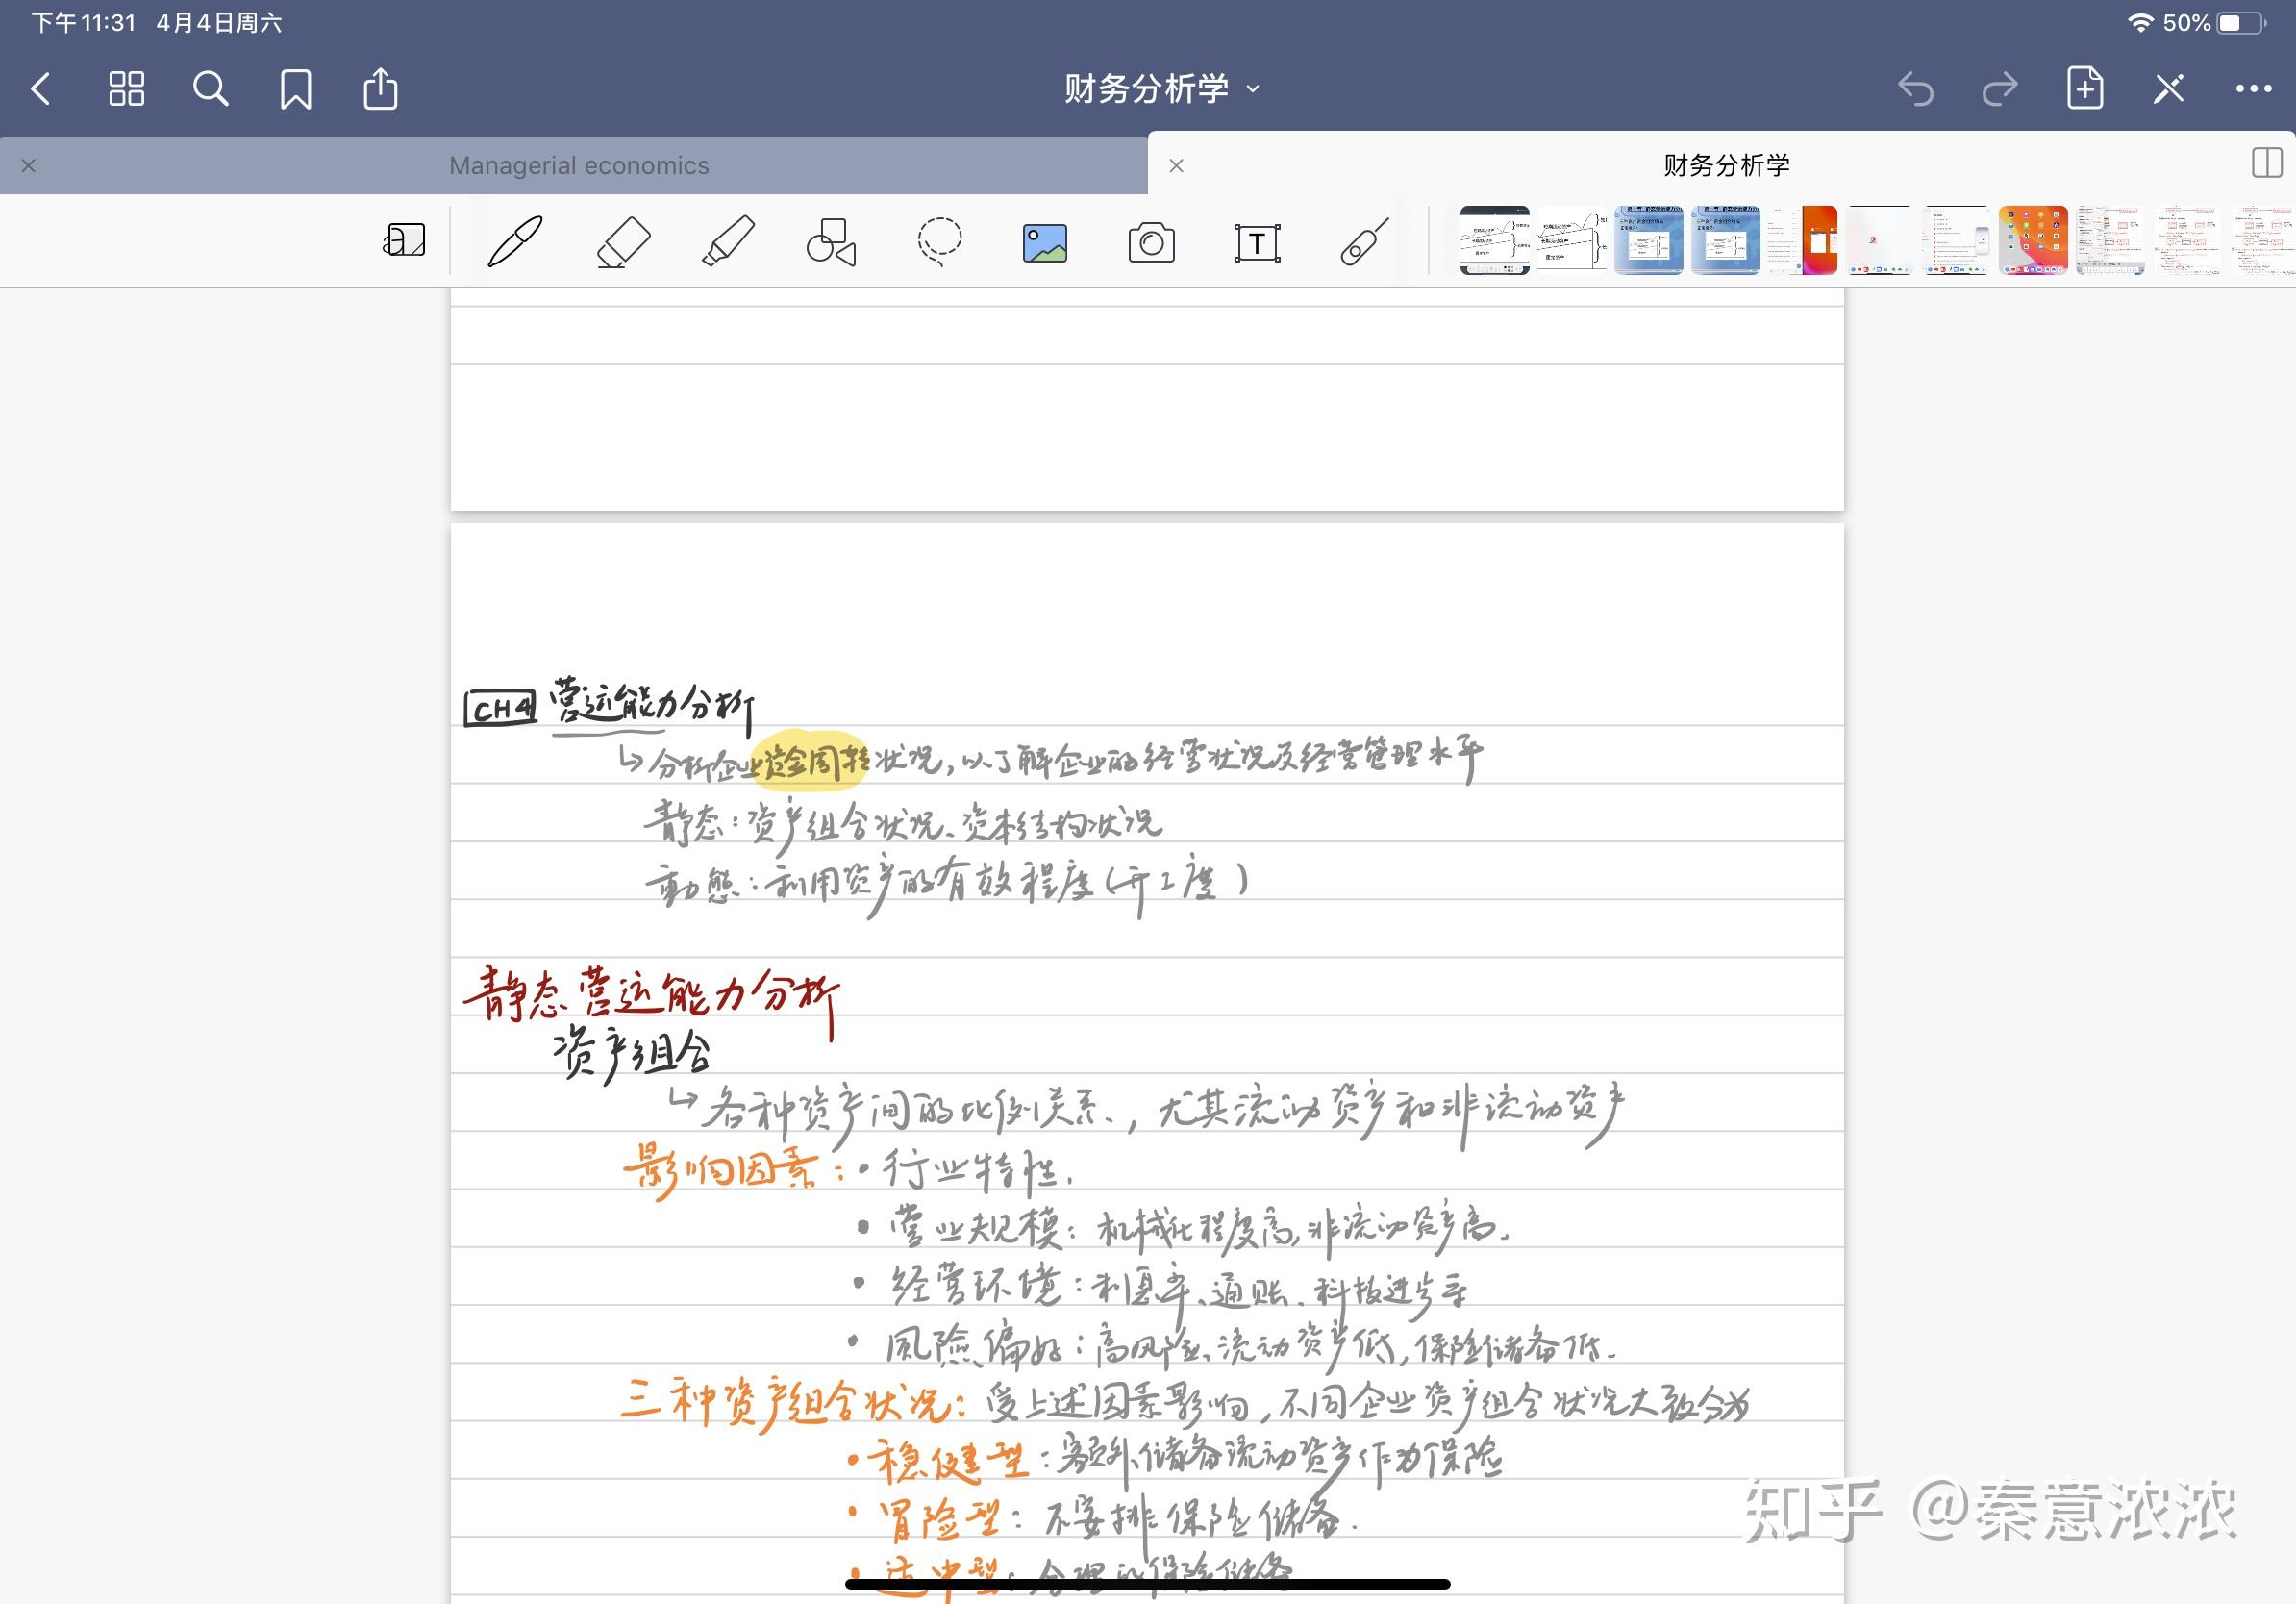 下午11:31 4月4日周六 50%
财务分析学
Managerial economics 财务分析学
CH4 营运能力分析
↳ 分析企业资金周转状况，以了解企业的经营状况及经营管理水平
静态：资产组合状况、资本结构状况
動態：利用资产的有效程度（开工度）
静态营运能力分析
资产组合
↳ 各种资产间的比例关系，尤其流动资产和非流动资产
影响因素：• 行业特性.
• 营业规模：机械化程度高，非流动资产高.
• 经营环境：利息率、通账、科技进步率
• 風险偏好：高风险、流动资产低，保险储备低.
三种资产组合状况：受上述因素影响，不同企业资产组合状况大致分为
• 稳健型：额外储备流动资产作为保险
• 冒险型：不安排保险储备.
• 适中型：合理的保险储备
知乎 @秦意浓浓